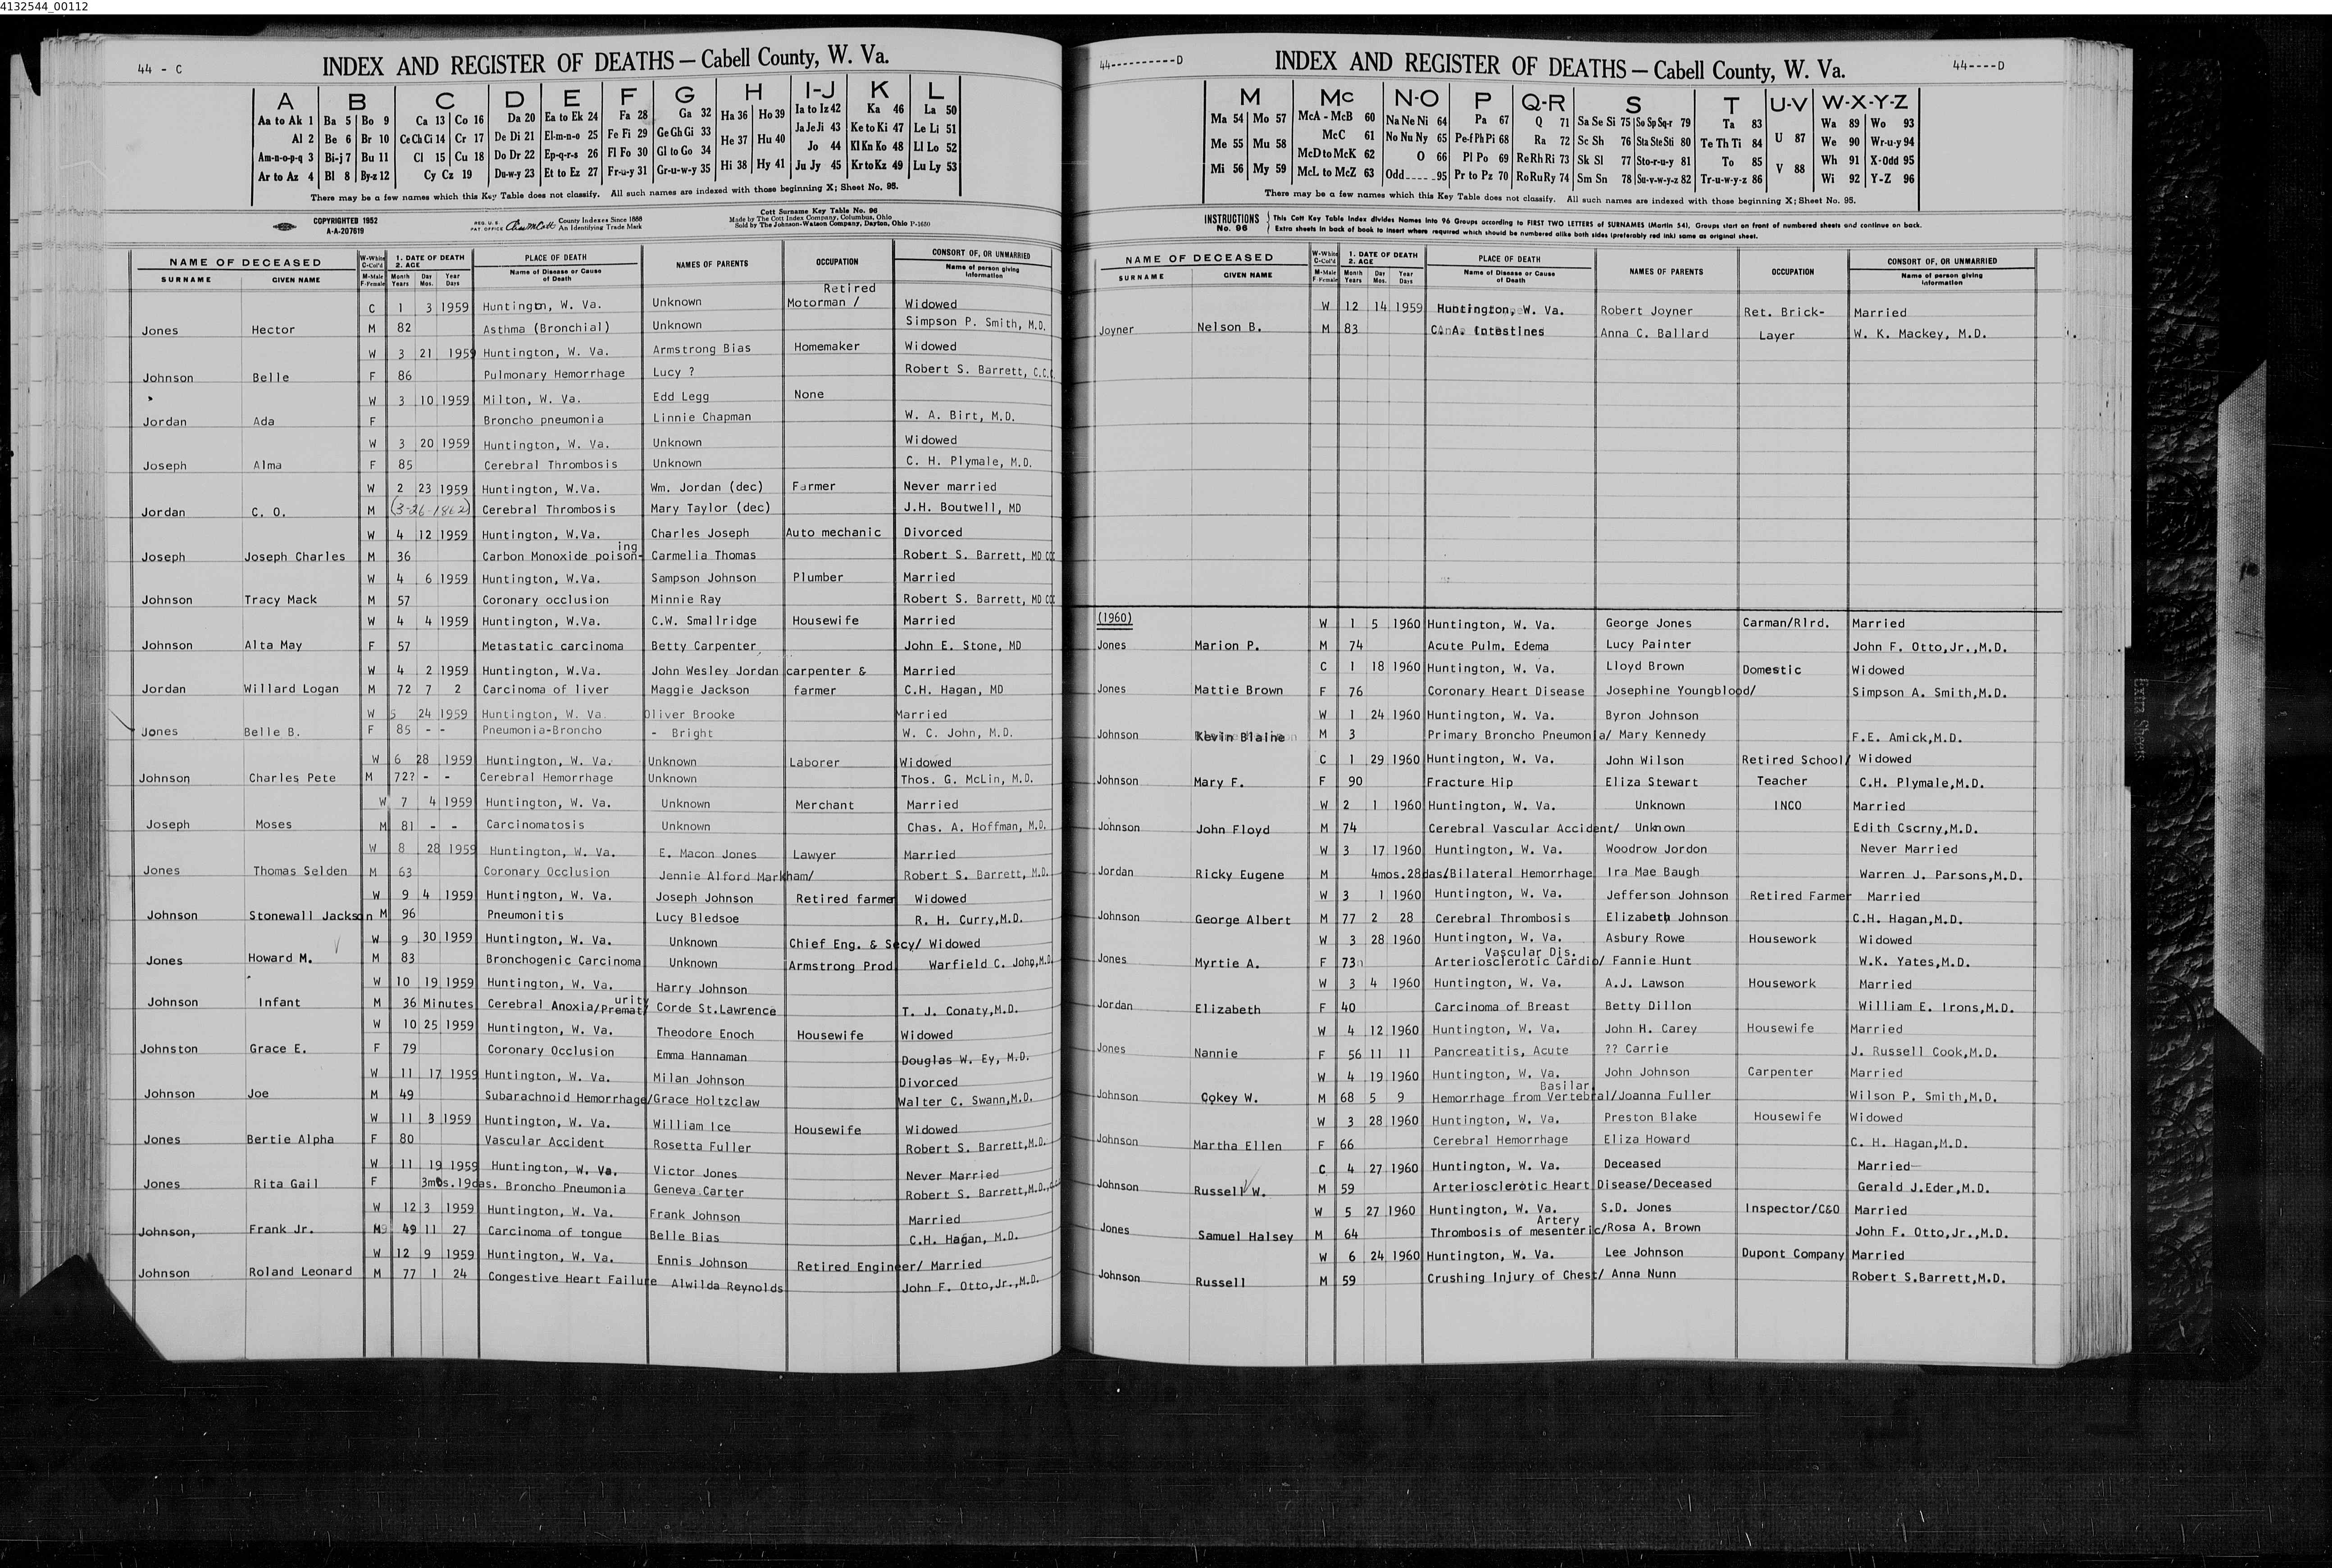 4132544_00112
44 - C
INDEX AND REGISTER OF DEATHS — Cabell County, W. Va.
A B C D E F G H I-J K L
Aa to Ak 1 Ba 5 Bo 9 Ca 13 Co 16 Da 20 Ea to Ek 24 Fa 28 Ga 32 Ha 36 Ho 39 Ia to Iz 42 Ka 46 La 50
Al 2 Be 6 Br 10 Ce Ch Ci 14 Cr 17 De Di 21 El-m-n-o 25 Fe Fi 29 Ge Gh Gi 33 He 37 Hu 40 Ja Je Ji 43 Ke to Ki 47 Le Li 51
Am-n-o-p-q 3 Bi-j 7 Bu 11 Cl 15 Cu 18 Do Dr 22 Ep-q-r-s 26 Fl Fo 30 Gl to Go 34 Jo 44 Kl Kn Ko 48 Ll Lo 52
Ar to Az 4 Bl 8 By-z 12 Cy Cz 19 Du-w-y 23 Et to Ez 27 Fr-u-y 31 Gr-u-w-y 35 Hi 38 Hy 41 Ju Jy 45 Kr to Kz 49 Lu Ly 53
There may be a few names which this Key Table does not classify. All such names are indexed with those beginning X; Sheet No. 95.
COPYRIGHTED 1952
A-A-207619
REG. U.S. PAT. OFFICE County Indexes Since 1888 An Identifying Trade Mark
Cott Surname Key Table No. 96
Made by The Cott Index Company, Columbus, Ohio
Sold by The Johnson-Watson Company, Dayton, Ohio P-1650
NAME OF DECEASED W-White C-Col'd 1. DATE OF DEATH 2. AGE PLACE OF DEATH NAMES OF PARENTS OCCUPATION CONSORT OF, OR UNMARRIED
SURNAME GIVEN NAME M-Male F-Female Month Years Day Mos. Year Days Name of Disease or Cause of Death Name of person giving Information
Retired
C 1 3 1959 Huntington, W. Va. Unknown Motorman / Widowed
Jones Hector M 82 Asthma (Bronchial) Unknown Simpson P. Smith, M.D.
W 3 21 1959 Huntington, W. Va. Armstrong Bias Homemaker Widowed
Johnson Belle F 86 Pulmonary Hemorrhage Lucy ? Robert S. Barrett, C.C.
W 3 10 1959 Milton, W. Va. Edd Legg None
Jordan Ada F Broncho pneumonia Linnie Chapman W. A. Birt, M.D.
W 3 20 1959 Huntington, W. Va. Unknown Widowed
Joseph Alma F 85 Cerebral Thrombosis Unknown C. H. Plymale, M.D.
W 2 23 1959 Huntington, W.Va. Wm. Jordan (dec) Farmer Never married
Jordan C. O. M (3-26-1862) Cerebral Thrombosis Mary Taylor (dec) J.H. Boutwell, MD
W 4 12 1959 Huntington, W.Va. Charles Joseph Auto mechanic Divorced
ing
Joseph Joseph Charles M 36 Carbon Monoxide poison- Carmelia Thomas Robert S. Barrett, MD CC
W 4 6 1959 Huntington, W.Va. Sampson Johnson Plumber Married
Johnson Tracy Mack M 57 Coronary occlusion Minnie Ray Robert S. Barrett, MD CC
W 4 4 1959 Huntington, W.Va. C.W. Smallridge Housewife Married
Johnson Alta May F 57 Metastatic carcinoma Betty Carpenter John E. Stone, MD
W 4 2 1959 Huntington, W.Va. John Wesley Jordan carpenter & Married
Jordan Willard Logan M 72 7 2 Carcinoma of liver Maggie Jackson farmer C.H. Hagan, MD
W 5 24 1959 Huntington, W. Va. Oliver Brooke Married
Jones Belle B. F 85 - - Pneumonia-Broncho - Bright W. C. John, M.D.
W 6 28 1959 Huntington, W. Va. Unknown Laborer Widowed
Johnson Charles Pete M 72? - - Cerebral Hemorrhage Unknown Thos. G. McLin, M.D.
W 7 4 1959 Huntington, W. Va. Unknown Merchant Married
Joseph Moses M 81 - - Carcinomatosis Unknown Chas. A. Hoffman, M.D.
W 8 28 1959 Huntington, W. Va. E. Macon Jones Lawyer Married
Jones Thomas Selden M 63 Coronary Occlusion Jennie Alford Markham/ Robert S. Barrett, M.D.
W 9 4 1959 Huntington, W. Va. Joseph Johnson Retired farmer Widowed
Johnson Stonewall Jackson M 96 Pneumonitis Lucy Bledsoe R. H. Curry,M.D.
W 9 30 1959 Huntington, W. Va. Unknown Chief Eng. & Secy/ Widowed
Jones Howard M. M 83 Bronchogenic Carcinoma Unknown Armstrong Prod. Warfield C. John,M.D.
W 10 19 1959 Huntington, W. Va. Harry Johnson
urity
Johnson Infant M 36 Minutes Cerebral Anoxia/Premat/ Corde St.Lawrence T. J. Conaty,M.D.
W 10 25 1959 Huntington, W. Va. Theodore Enoch Housewife Widowed
Johnston Grace E. F 79 Coronary Occlusion Emma Hannaman Douglas W. Ey, M.D.
W 11 17 1959 Huntington, W. Va. Milan Johnson Divorced
Johnson Joe M 49 Subarachnoid Hemorrhage/Grace Holtzclaw Walter C. Swann,M.D.
W 11 3 1959 Huntington, W. Va. William Ice Housewife Widowed
Jones Bertie Alpha F 80 Vascular Accident Rosetta Fuller Robert S. Barrett,M.D.
W 11 19 1959 Huntington, W. Va. Victor Jones Never Married
Jones Rita Gail F 3mos.19das. Broncho Pneumonia Geneva Carter Robert S. Barrett,M.D.
W 12 3 1959 Huntington, W. Va. Frank Johnson Married
Johnson, Frank Jr. M 49 11 27 Carcinoma of tongue Belle Bias C.H. Hagan, M.D.
W 12 9 1959 Huntington, W. Va. Ennis Johnson Retired Engineer/ Married
Johnson Roland Leonard M 77 1 24 Congestive Heart Failure Alwilda Reynolds John F. Otto,Jr.,M.D.
44----------D
INDEX AND REGISTER OF DEATHS — Cabell County, W. Va.
44----D
M Mc N-O P Q-R S T U-V W-X-Y-Z
Ma 54 Mo 57 McA - McB 60 Na Ne Ni 64 Pa 67 Q 71 Sa Se Si 75 So Sp Sq-r 79 Ta 83 Wa 89 Wo 93
Me 55 Mu 58 McC 61 No Nu Ny 65 Pe-f Ph Pi 68 Ra 72 Sc Sh 76 Sta Ste Sti 80 Te Th Ti 84 U 87 We 90 Wr-u-y 94
McD to McK 62 O 66 Pl Po 69 Re Rh Ri 73 Sk Sl 77 Sto-r-u-y 81 To 85 Wh 91 X-Odd 95
Mi 56 My 59 McL to McZ 63 Odd-----95 Pr to Pz 70 Ro Ru Ry 74 Sm Sn 78 Su-v-w-y-z 82 Tr-u-w-y-z 86 V 88 Wi 92 Y-Z 96
There may be a few names which this Key Table does not classify. All such names are indexed with those beginning X; Sheet No. 95.
INSTRUCTIONS No. 96
This Cott Key Table Index divides Names into 96 Groups according to FIRST TWO LETTERS of SURNAMES (Martin 54). Groups start on front of numbered sheets and continue on back.
Extra sheets in back of book to insert where required which should be numbered alike both sides (preferably red ink) same as original sheet.
NAME OF DECEASED W-White C-Col'd 1. DATE OF DEATH 2. AGE PLACE OF DEATH NAMES OF PARENTS OCCUPATION CONSORT OF, OR UNMARRIED
SURNAME GIVEN NAME M-Male F-Female Month Years Day Mos. Year Days Name of Disease or Cause of Death Name of person giving Information
W 12 14 1959 Huntington, W. Va. Robert Joyner Ret. Brick- Married
Joyner Nelson B. M 83 C.A. Intestines Anna C. Ballard Layer W. K. Mackey, M.D.
(1960)
W 1 5 1960 Huntington, W. Va. George Jones Carman/Rlrd. Married
Jones Marion P. M 74 Acute Pulm. Edema Lucy Painter John F. Otto,Jr.,M.D.
C 1 18 1960 Huntington, W. Va. Lloyd Brown Domestic Widowed
Jones Mattie Brown F 76 Coronary Heart Disease Josephine Youngblood/ Simpson A. Smith,M.D.
W 1 24 1960 Huntington, W. Va. Byron Johnson
Johnson Kevin Blaine M 3 Primary Broncho Pneumonia/ Mary Kennedy F.E. Amick,M.D.
C 1 29 1960 Huntington, W. Va. John Wilson Retired School/ Widowed
Johnson Mary F. F 90 Fracture Hip Eliza Stewart Teacher C.H. Plymale,M.D.
W 2 1 1960 Huntington, W. Va. Unknown INCO Married
Johnson John Floyd M 74 Cerebral Vascular Accident/ Unknown Edith Cscrny,M.D.
W 3 17 1960 Huntington, W. Va. Woodrow Jordon Never Married
Jordan Ricky Eugene M 4mos.28das/Bilateral Hemorrhage Ira Mae Baugh Warren J. Parsons,M.D.
W 3 1 1960 Huntington, W. Va. Jefferson Johnson Retired Farmer Married
Johnson George Albert M 77 2 28 Cerebral Thrombosis Elizabeth Johnson C.H. Hagan,M.D.
W 3 28 1960 Huntington, W. Va. Asbury Rowe Housework Widowed
Vascular Dis.
Jones Myrtie A. F 73 Arteriosclerotic Cardio/ Fannie Hunt W.K. Yates,M.D.
W 3 4 1960 Huntington, W. Va. A.J. Lawson Housework Married
Jordan Elizabeth F 40 Carcinoma of Breast Betty Dillon William E. Irons,M.D.
W 4 12 1960 Huntington, W. Va. John H. Carey Housewife Married
Jones Nannie F 56 11 11 Pancreatitis, Acute ?? Carrie J. Russell Cook,M.D.
W 4 19 1960 Huntington, W. Va. John Johnson Carpenter Married
Basilar
Johnson Cokey W. M 68 5 9 Hemorrhage from Vertebral/Joanna Fuller Wilson P. Smith,M.D.
W 3 28 1960 Huntington, W. Va. Preston Blake Housewife Widowed
Johnson Martha Ellen F 66 Cerebral Hemorrhage Eliza Howard C. H. Hagan,M.D.
C 4 27 1960 Huntington, W. Va. Deceased Married
Johnson Russell W. M 59 Arteriosclerotic Heart Disease/Deceased Gerald J.Eder,M.D.
W 5 27 1960 Huntington, W. Va. S.D. Jones Inspector/C&O Married
Artery
Jones Samuel Halsey M 64 Thrombosis of mesenteric/Rosa A. Brown John F. Otto,Jr.,M.D.
W 6 24 1960 Huntington, W. Va. Lee Johnson Dupont Company Married
Johnson Russell M 59 Crushing Injury of Chest/ Anna Nunn Robert S.Barrett,M.D.
Extra Sheets